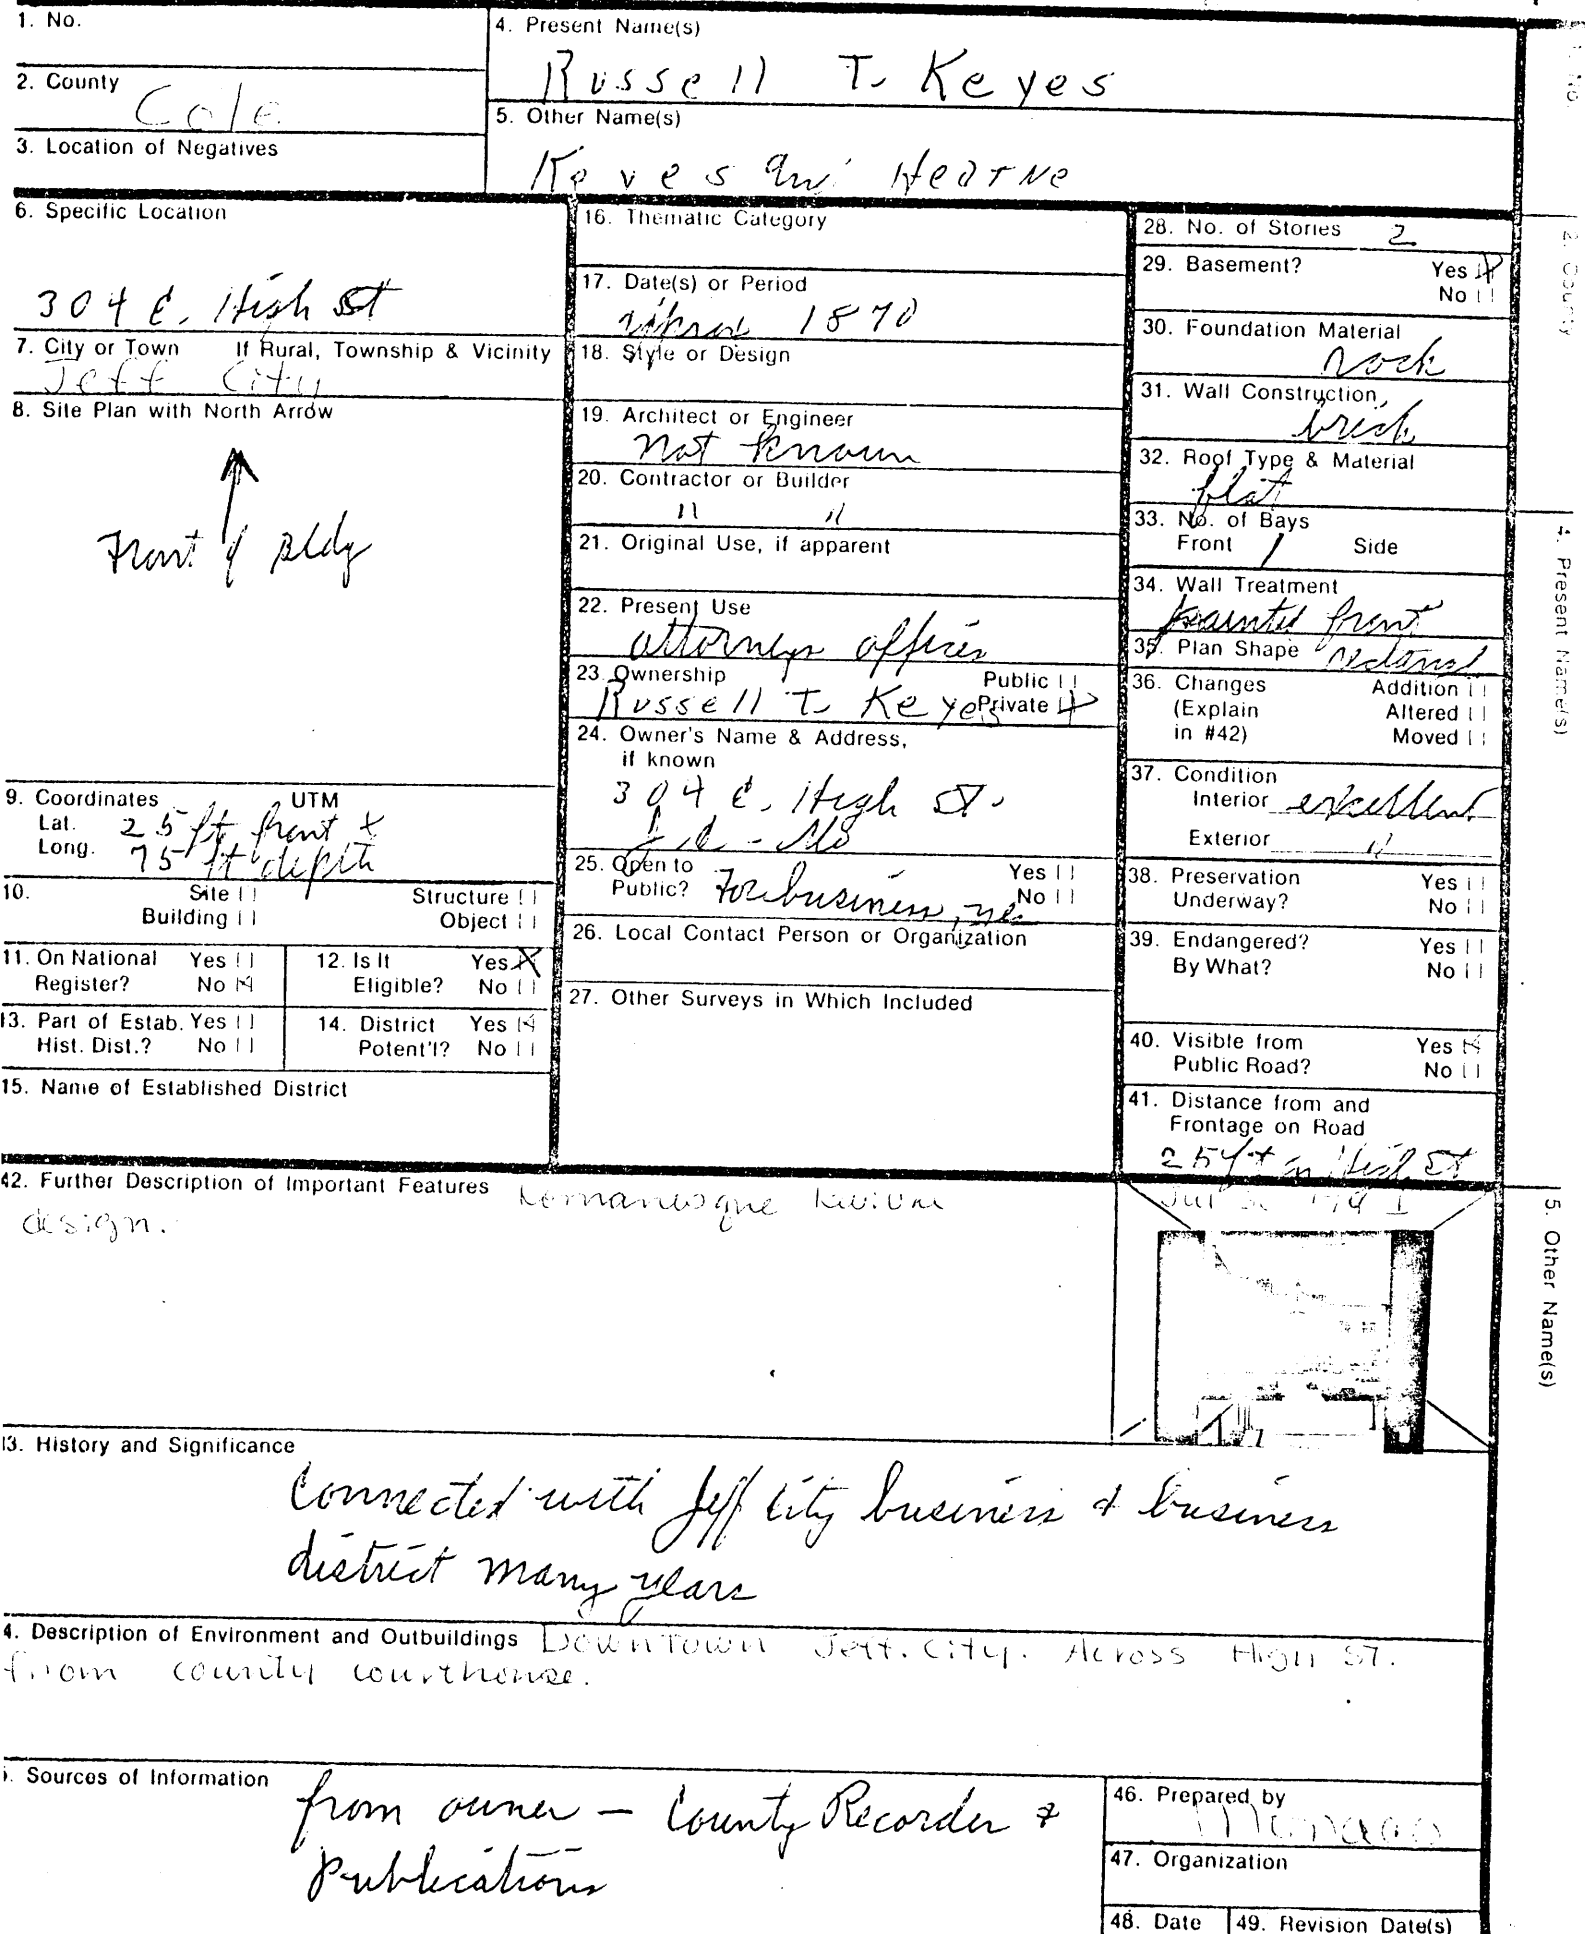 1. No.
2. County
Cole
3. Location of Negatives
4. Present Name(s)
Russell T. Keyes
5. Other Name(s)
Keyes and Hearne
6. Specific Location
304 E. High St
7. City or Town If Rural, Township & Vicinity
Jeff City
8. Site Plan with North Arrow
Front of Bldg
9. Coordinates UTM
Lat.
Long.
25 ft front x
75 ft depth
10. Site Structure
Building Object
11. On National Yes
Register? No
12. Is It Yes X
Eligible? No
13. Part of Estab. Yes
Hist. Dist.? No
14. District Yes
Potent'l? No
15. Name of Established District
16. Thematic Category
17. Date(s) or Period
1870
18. Style or Design
19. Architect or Engineer
not known
20. Contractor or Builder
" "
21. Original Use, if apparent
22. Present Use
attorneys offices
23. Ownership Public
Russell T. Keyes Private
24. Owner's Name & Address,
if known
304 E. High St.
J.C. - Mo
25. Open to Yes
Public? For business, No
26. Local Contact Person or Organization
27. Other Surveys in Which Included
28. No. of Stories 2
29. Basement? Yes
No
30. Foundation Material
rock
31. Wall Construction
brick
32. Roof Type & Material
flat
33. No. of Bays
Front 1 Side
34. Wall Treatment
painted front
35. Plan Shape
36. Changes Addition
(Explain Altered
in #42) Moved
37. Condition
Interior excellent
Exterior "
38. Preservation Yes
Underway? No
39. Endangered? Yes
By What? No
40. Visible from Yes
Public Road? No
41. Distance from and
Frontage on Road
25 ft on High St
42. Further Description of Important Features Romanesque Revival
design.
3. History and Significance
Connected with Jeff City business & business
district many years
4. Description of Environment and Outbuildings Downtown Jeff. City. Across High St.
from county courthouse.
Sources of Information
from owner — County Recorder &
Publications
46. Prepared by
47. Organization
48. Date 49. Revision Date(s)
1. No.
2. County
4. Present Name(s)
5. Other Name(s)